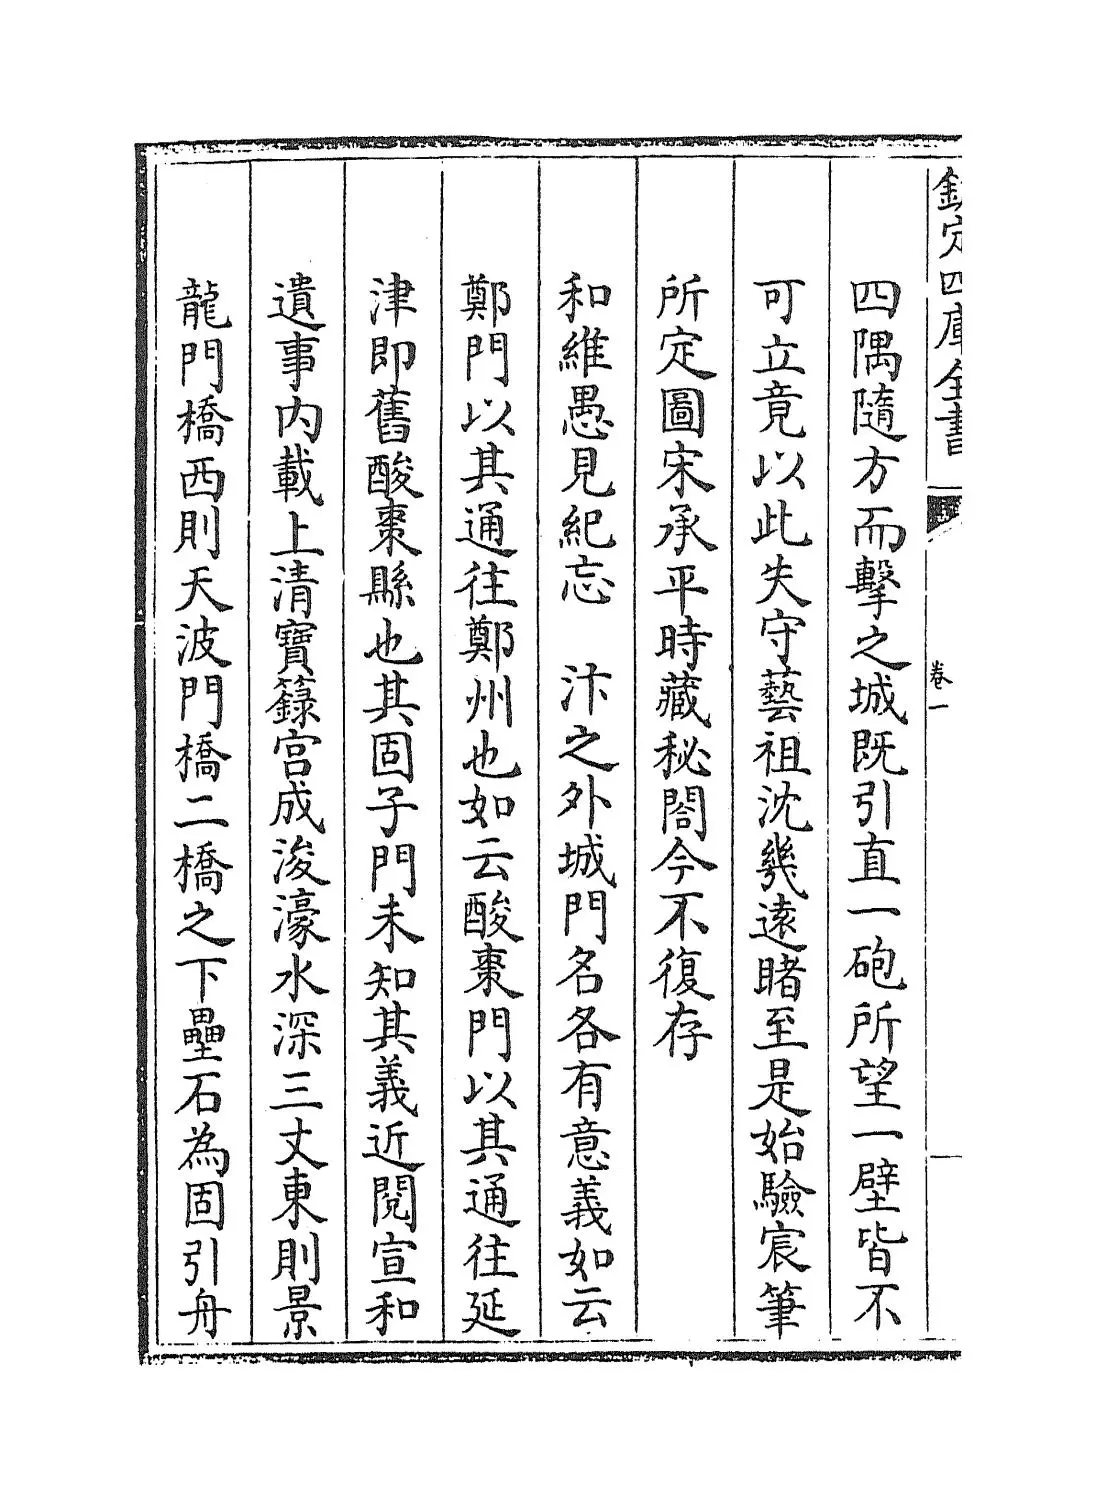 欽定四庫全書
卷一
四隅隨方而擊之城既引直一砲所望一壁皆不
可立竟以此失守藝祖沈幾遠睹至是始驗宸筆
所定圖宋承平時藏秘閤今不復存
和維愚見紀忘　汴之外城門名各有意義如云
鄭門以其通往鄭州也如云酸棗門以其通往延
津即舊酸棗縣也其固子門未知其義近閱宣和
遺事内載上清寶籙宫成浚濠水深三丈東則景
龍門橋西則天波門橋二橋之下壘石為固引舟